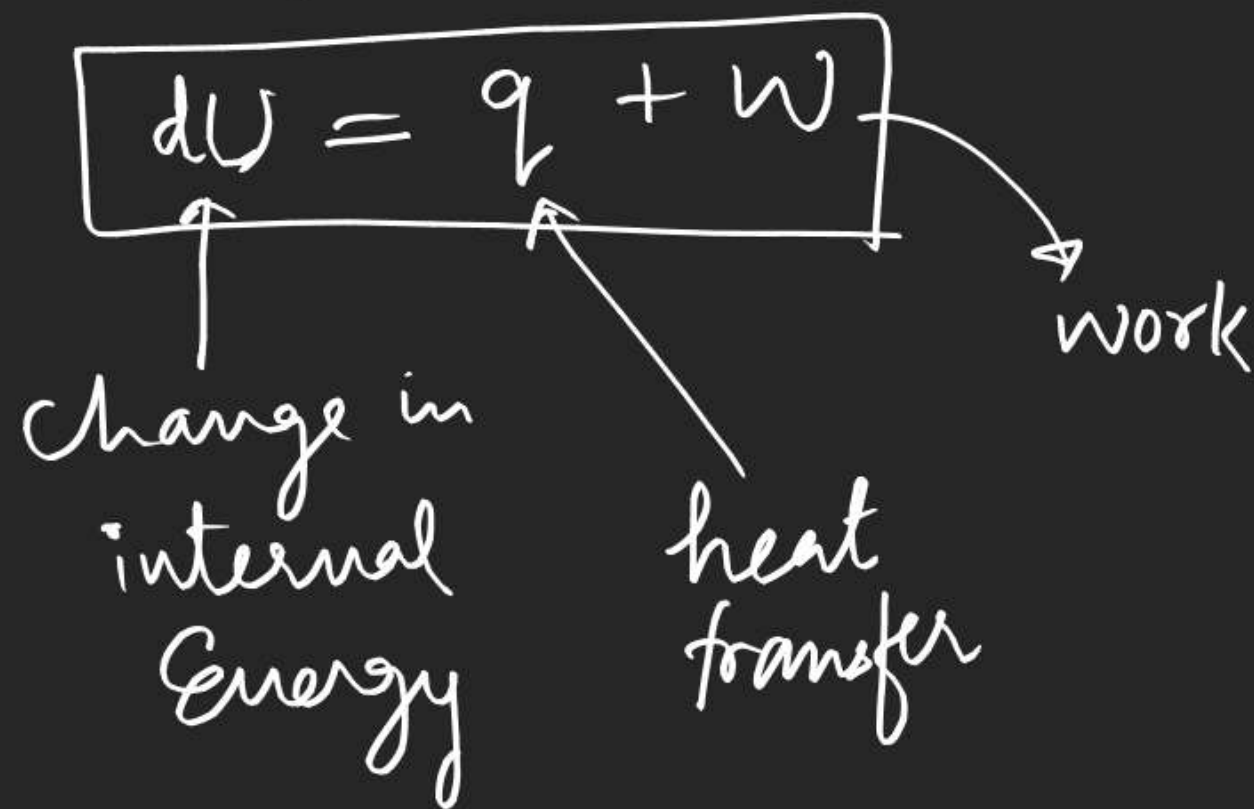 dU = q + W
work
Change in
internal
Energy
heat
transfer